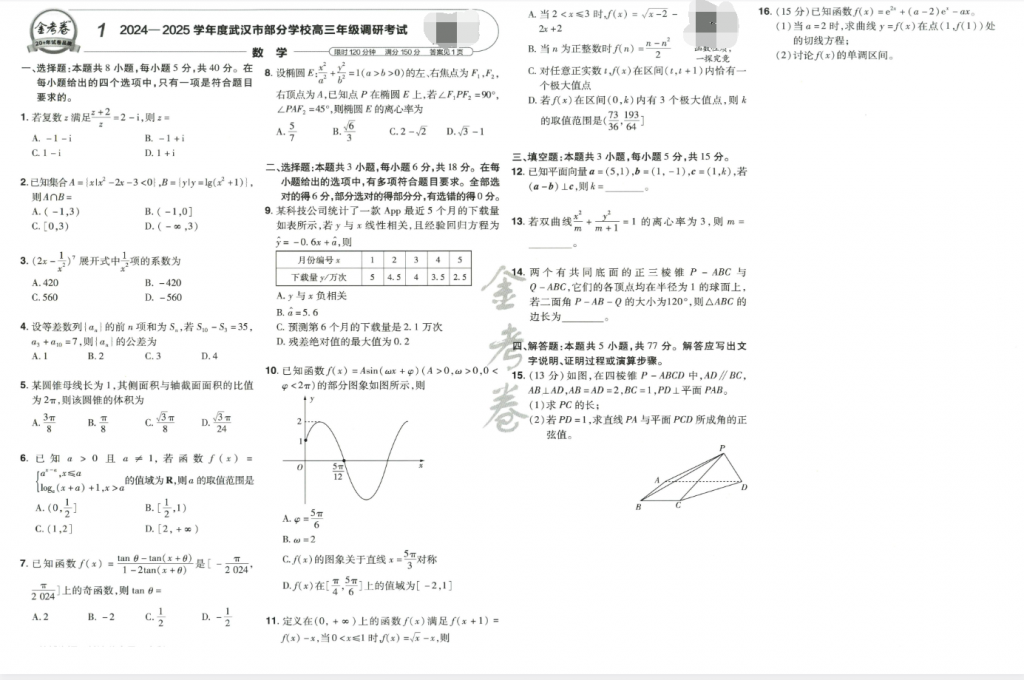 金考卷
20+年试卷品牌
1 2024—2025学年度武汉市部分学校高三年级调研考试
数 学
限时120分钟 满分150分 答案见1页
一、选择题:本题共8小题,每小题5分,共40分。在
每小题给出的四个选项中,只有一项是符合题目
要求的。
1. 若复数z满足(z+2)/z=2-i,则z=
A. -1-i B. -1+i
C. 1-i D. 1+i
2. 已知集合A={x|x²-2x-3<0},B={y|y=lg(x²+1)},
则A∩B=
A. (-1,3) B. (-1,0]
C. [0,3) D. (-∞,3)
3. (2x-1/x²)⁷展开式中1/x²项的系数为
A. 420 B. -420
C. 560 D. -560
4. 设等差数列{aₙ}的前n项和为Sₙ,若S₁₀-S₃=35,
a₃+a₁₀=7,则{aₙ}的公差为
A. 1 B. 2 C. 3 D. 4
5. 某圆锥母线长为1,其侧面积与轴截面面积的比值
为2π,则该圆锥的体积为
A. 3π/8 B. π/8 C. √3π/8 D. √3π/24
6. 已知a>0且a≠1,若函数f(x)=
{aˣ⁻ᵃ,x≤a
logₐ(x+a)+1,x>a
的值域为R,则a的取值范围是
A. (0,1/2] B. [1/2,1)
C. (1,2] D. [2,+∞)
7. 已知函数f(x)=(tan θ-tan(x+θ))/(1-2tan(x+θ))是[-π/2 024,
π/2 024]上的奇函数,则tan θ=
A. 2 B. -2 C. 1/2 D. -1/2
8. 设椭圆E:x²/a²+y²/b²=1(a>b>0)的左、右焦点为F₁,F₂,
右顶点为A,已知点P在椭圆E上,若∠F₁PF₂=90°,
∠PAF₂=45°,则椭圆E的离心率为
A. 5/7 B. √6/3 C. 2-√2 D. √3-1
二、选择题:本题共3小题,每小题6分,共18分。在每
小题给出的选项中,有多项符合题目要求。全部选
对的得6分,部分选对的得部分分,有选错的得0分。
9. 某科技公司统计了一款App最近5个月的下载量
如表所示,若y与x线性相关,且经验回归方程为
ŷ=-0.6x+â,则
月份编号x 1 2 3 4 5
下载量y/万次 5 4.5 4 3.5 2.5
A. y与x负相关
B. â=5.6
C. 预测第6个月的下载量是2.1万次
D. 残差绝对值的最大值为0.2
10. 已知函数f(x)=Asin(ωx+φ)(A>0,ω>0,0<
φ<2π)的部分图象如图所示,则
y
2
1
O 5π/12 x
A. φ=5π/6
B. ω=2
C. f(x)的图象关于直线x=5π/3对称
D. f(x)在[π/4,5π/6]上的值域为[-2,1]
11. 定义在(0,+∞)上的函数f(x)满足f(x+1)=
f(x)-x,当0<x≤1时,f(x)=√x-x,则
A. 当2<x≤3时,f(x)=√(x-2)-
2x+2
B. 当n为正整数时f(n)=(n-n²)/2
一探究竟
C. 对任意正实数t,f(x)在区间(t,t+1)内恰有一
个极大值点
D. 若f(x)在区间(0,k)内有3个极大值点,则k
的取值范围是(73/36,193/64]
三、填空题:本题共3小题,每小题5分,共15分。
12. 已知平面向量a=(5,1),b=(1,-1),c=(1,k),若
(a-b)⊥c,则k=______。
13. 若双曲线x²/m+y²/(m+1)=1的离心率为3,则m=
______。
14. 两个有共同底面的正三棱锥P-ABC与
Q-ABC,它们的各顶点均在半径为1的球面上,
若二面角P-AB-Q的大小为120°,则△ABC的
边长为______。
四、解答题:本题共5小题,共77分。解答应写出文
字说明、证明过程或演算步骤。
15. (13分)如图,在四棱锥P-ABCD中,AD∥BC,
AB⊥AD,AB=AD=2,BC=1,PD⊥平面PAB。
(1)求PC的长;
(2)若PD=1,求直线PA与平面PCD所成角的正
弦值。
P
A
D
B C
金考卷
16. (15分)已知函数f(x)=e²ˣ+(a-2)eˣ-ax。
(1)当a=2时,求曲线y=f(x)在点(1,f(1))处
的切线方程;
(2)讨论f(x)的单调区间。